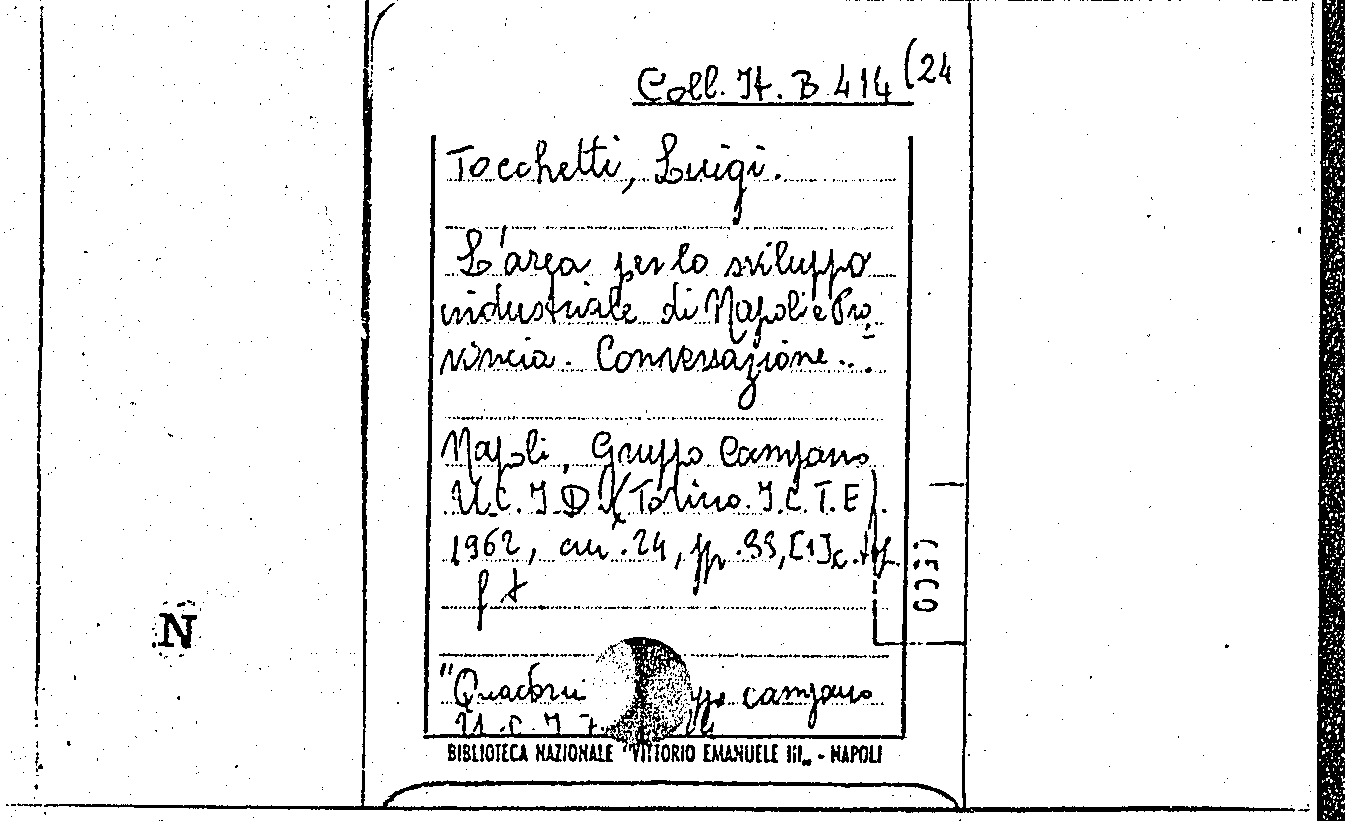 Coll. It. B 414 (24
Tocchetti, Luigi.
L'area per lo sviluppo
industriale di Napoli e Pro
vincia. Conversazione...
Napoli, Gruppo Campano
U.C.I.D. (Torino. I.C.T.E).
1962, cm. 24, pp. 33, [1] c.
"Quaderni campano
U.C.I
BIBLIOTECA NAZIONALE "VITTORIO EMANUELE III„ - NAPOLI
N